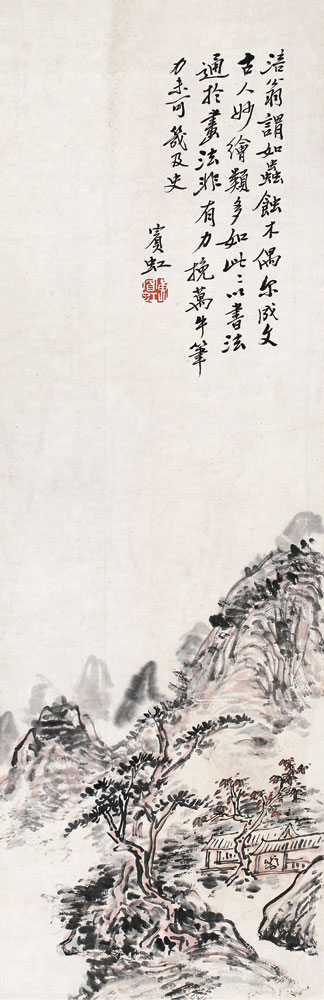 涪翁謂如蟲蝕木偶尔成文
古人妙繪類多如此此以書法
通於畫法非有力挽萬牛筆
力未可幾及史
賓虹